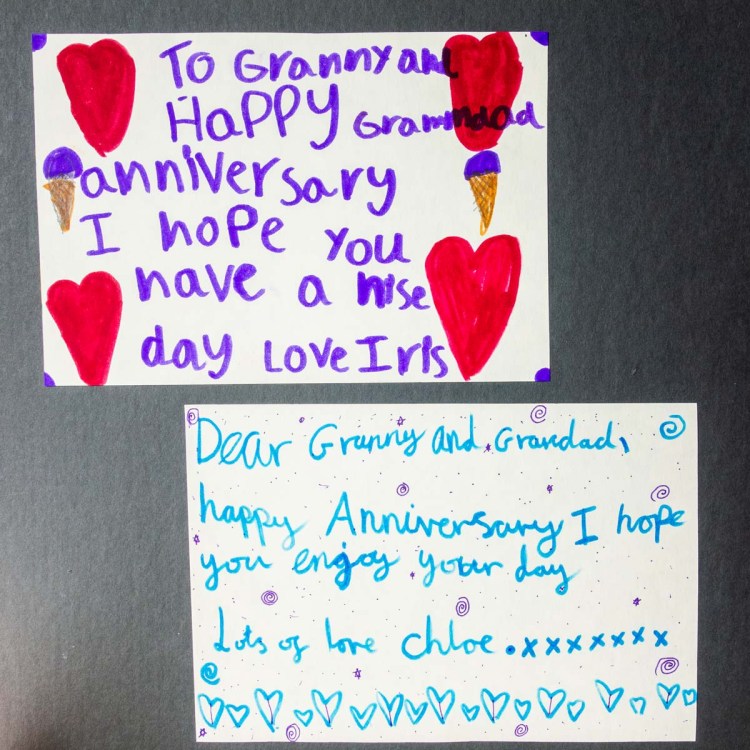 To Granny and
HaPPY Grandad
anniversary
I hope you
have a nise
day Love Iris
Dear Granny and Grandad,
happy Anniversary I hope
you enjoy your day
Lots of love Chloe.xxxxxxx